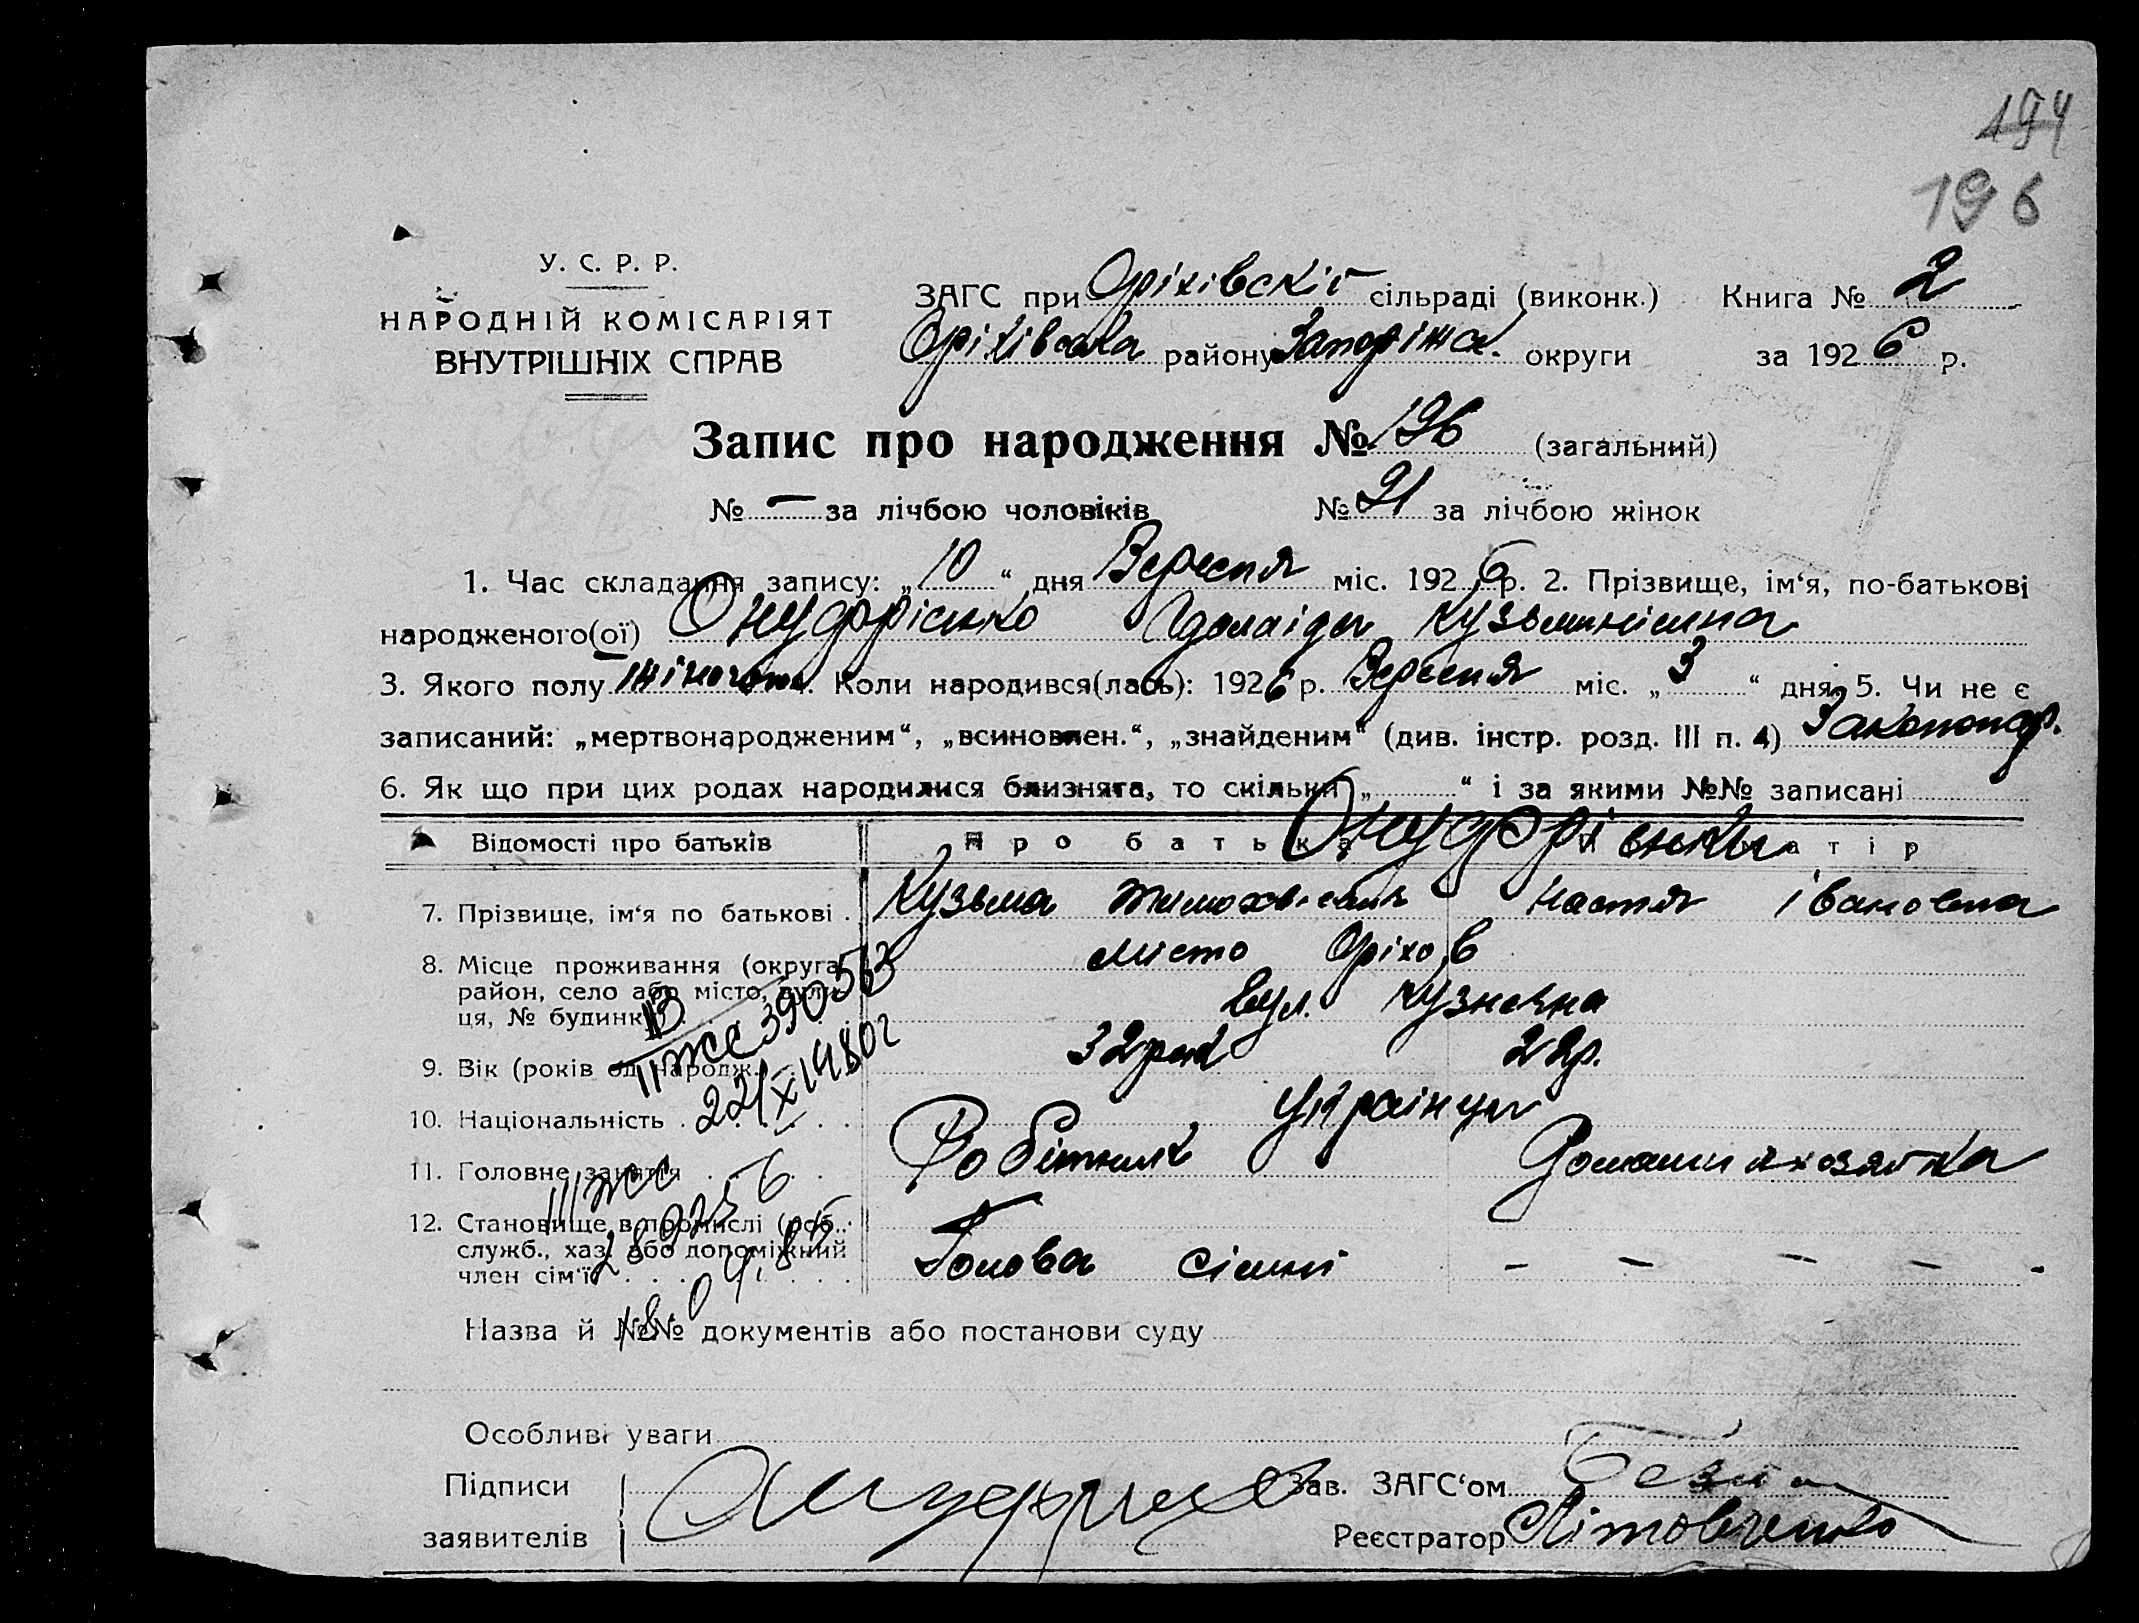 194
196
У. С. Р. Р.
НАРОДНІЙ КОМІСАРІЯТ
ВНУТРІШНІХ СПРАВ
ЗАГС при Оріхівскій сільраді (виконк.) Книга № 2
Оріхівська району Запоріжа. округи за 1926 р.
Запис про народження № 196 (загальний)
№ — за лічбою чоловіків № 91 за лічбою жінок
1. Час складання запису: „10“ дня Вересня міс. 1926 р. 2. Прізвище, ім‘я, по-батькові
народженого(ої) Онуфрієнко Кузьминішна
3. Якого полу жіночого. Коли народився(лась): 1926 р. Вересня міс. „3“ дня 5. Чи не є
записаний: „мертвонародженим“, „всиновлен.“, „знайденим“ (див. інстр. розд. III п. 4) Законнар.
6. Як що при цих родах народилися близнята, то скільки „ “ і за якими №№ записані
Відомості про батьків Про батька матір
Онуфрієнки
7. Прізвище, ім‘я по батькові . Кузьма Настя Івановна
8. Місце проживання (округа, район, село або місто, вулиця, № будинку) місто Оріхов
вул. Кузнечна
9. Вік (років од народж. 32 рок 22 р.
10. Національність Українци
11. Головне заняття Робітник Домашня хозяйка
12. Становище в промислі (роб., служб., хаз. або допоміжний член сім‘ї) Голова сімні – – – – -
II жс 390563
22/XI 1980г
III жс
289256
18.04.85
Назва й №№ документів або постанови суду
Особливі уваги
Підписи заявителів Зав. ЗАГС‘ом
Реєстратор Літовченко